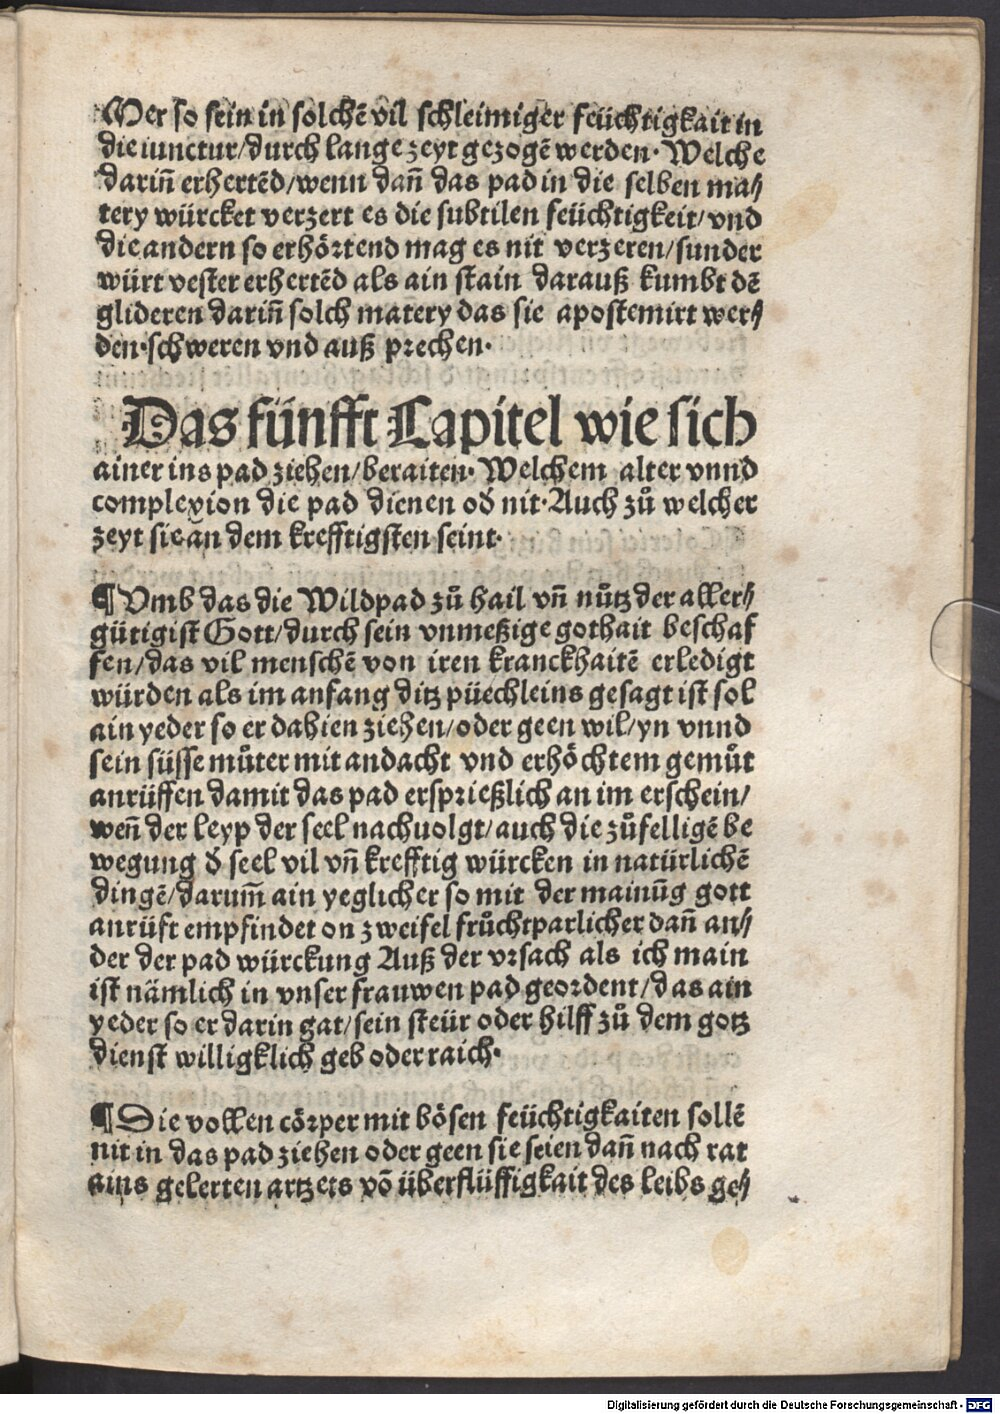 Mer so sein in solchē vil schleimiger feüchtigkait in
die iunctur/durch lange zeyt gezogē werden. Welche
darin̄ erhertēd/wenn dan̄ das pad in die selben ma⸗
tery würcket verzert es die subtilen feüchtigkeit/vnd
die andern so erhörtend mag es nit verzeren/sunder
würt vester erhertēd als ain stain darauß kumbt dē
glideren darin̄ solch matery das sie apostemirt wer⸗
den.schweren vnd auß prechen.
Das fünfft Capitel wie sich
ainer ins pad ziehen/beraiten. Welchem alter vnnd
complexion die pad dienen od̄ nit. Auch zů welcher
zeyt sie an dem krefftigsten seint.
¶Vmb das die Wildpad zů hail vn̄ nůtz der aller⸗
gütigist Gott/durch sein vnmeßige gothait beschaf
fen/das vil menschē von iren kranckhaitē erledigt
würden als im anfang ditz püechleins gesagt ist sol
ain yeder so er dahien ziehen/oder geen wil/yn vnnd
sein süsse můter mit andacht vnd erhöchtem gemůt
anrüffen damit das pad ersprießlich an im erschein/
wen̄ der leyp der seel nachuolgt/auch die zůfelligē be
wegung d̄ seel vil vn̄ krefftig würcken in natürlichē
dingē/darum̄ ain yeglicher so mit der mainūg gott
anrüft empfindet on zweifel frůchtparlicher dan̄ an⸗
der der pad würckung Auß der vrsach als ich main
ist nämlich in vnser frauwen pad geordent/das ain
yeder so er darin gat/sein steür oder hilff zů dem gotz
dienst willigklich geb oder raich.
¶Die vollen cörper mit bösen feüchtigkaiten sollē
nit in das pad ziehen oder geen sie seien dan̄ nach rat
ains gelerten artzets vō überflüffigkait des leibs ge⸗
Digitalisierung gefördert durch die Deutsche Forschungsgemeinschaft - DFG